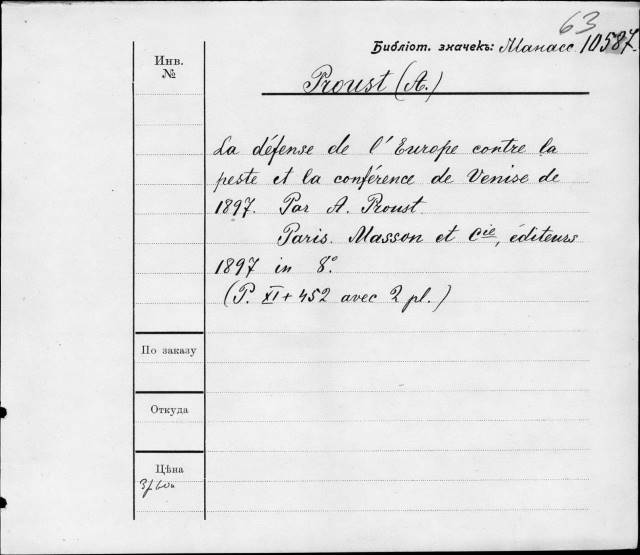 63
Библіот. значекъ: Манасс 10587.
Инв.
№
Proust (A.)
La défense de l'Europe contre la
peste et la conférence de Venise de
1897. Par A. Proust
Paris. Masson et Cie, éditeurs
1897 in 8°.
(P. XI + 452 avec 2 pl.)
По заказу
Откуда
Цѣна